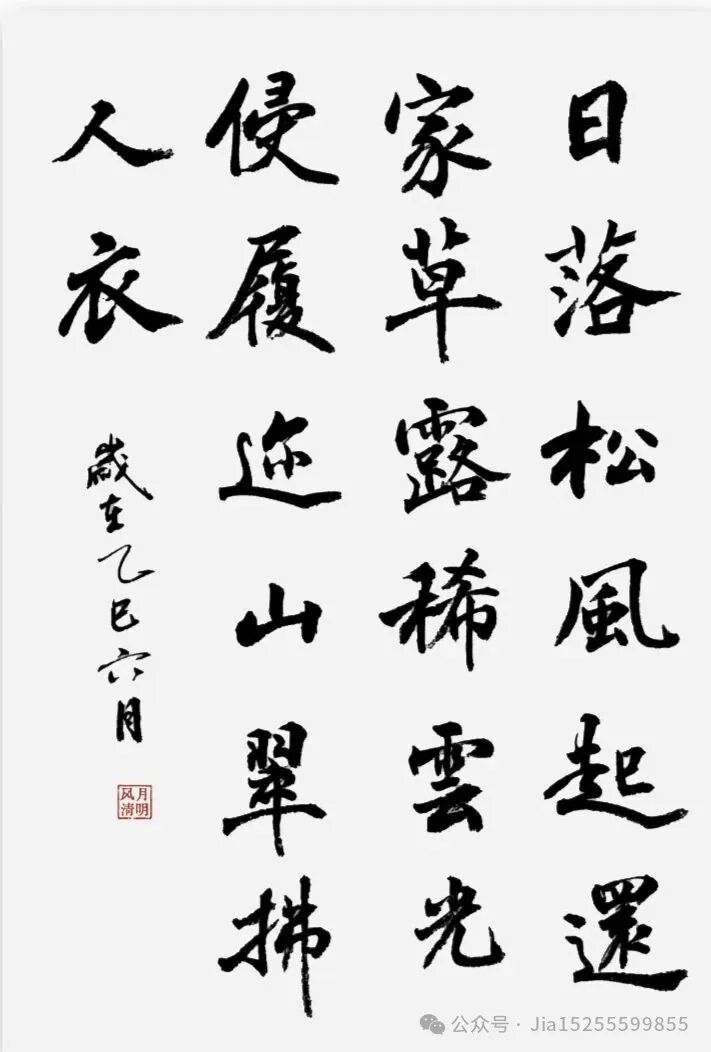 日落松風起還
家草露稀雲光
侵履迹山翠拂
人衣
歲在乙巳六月
月明风清
公众号· Jia15255599855